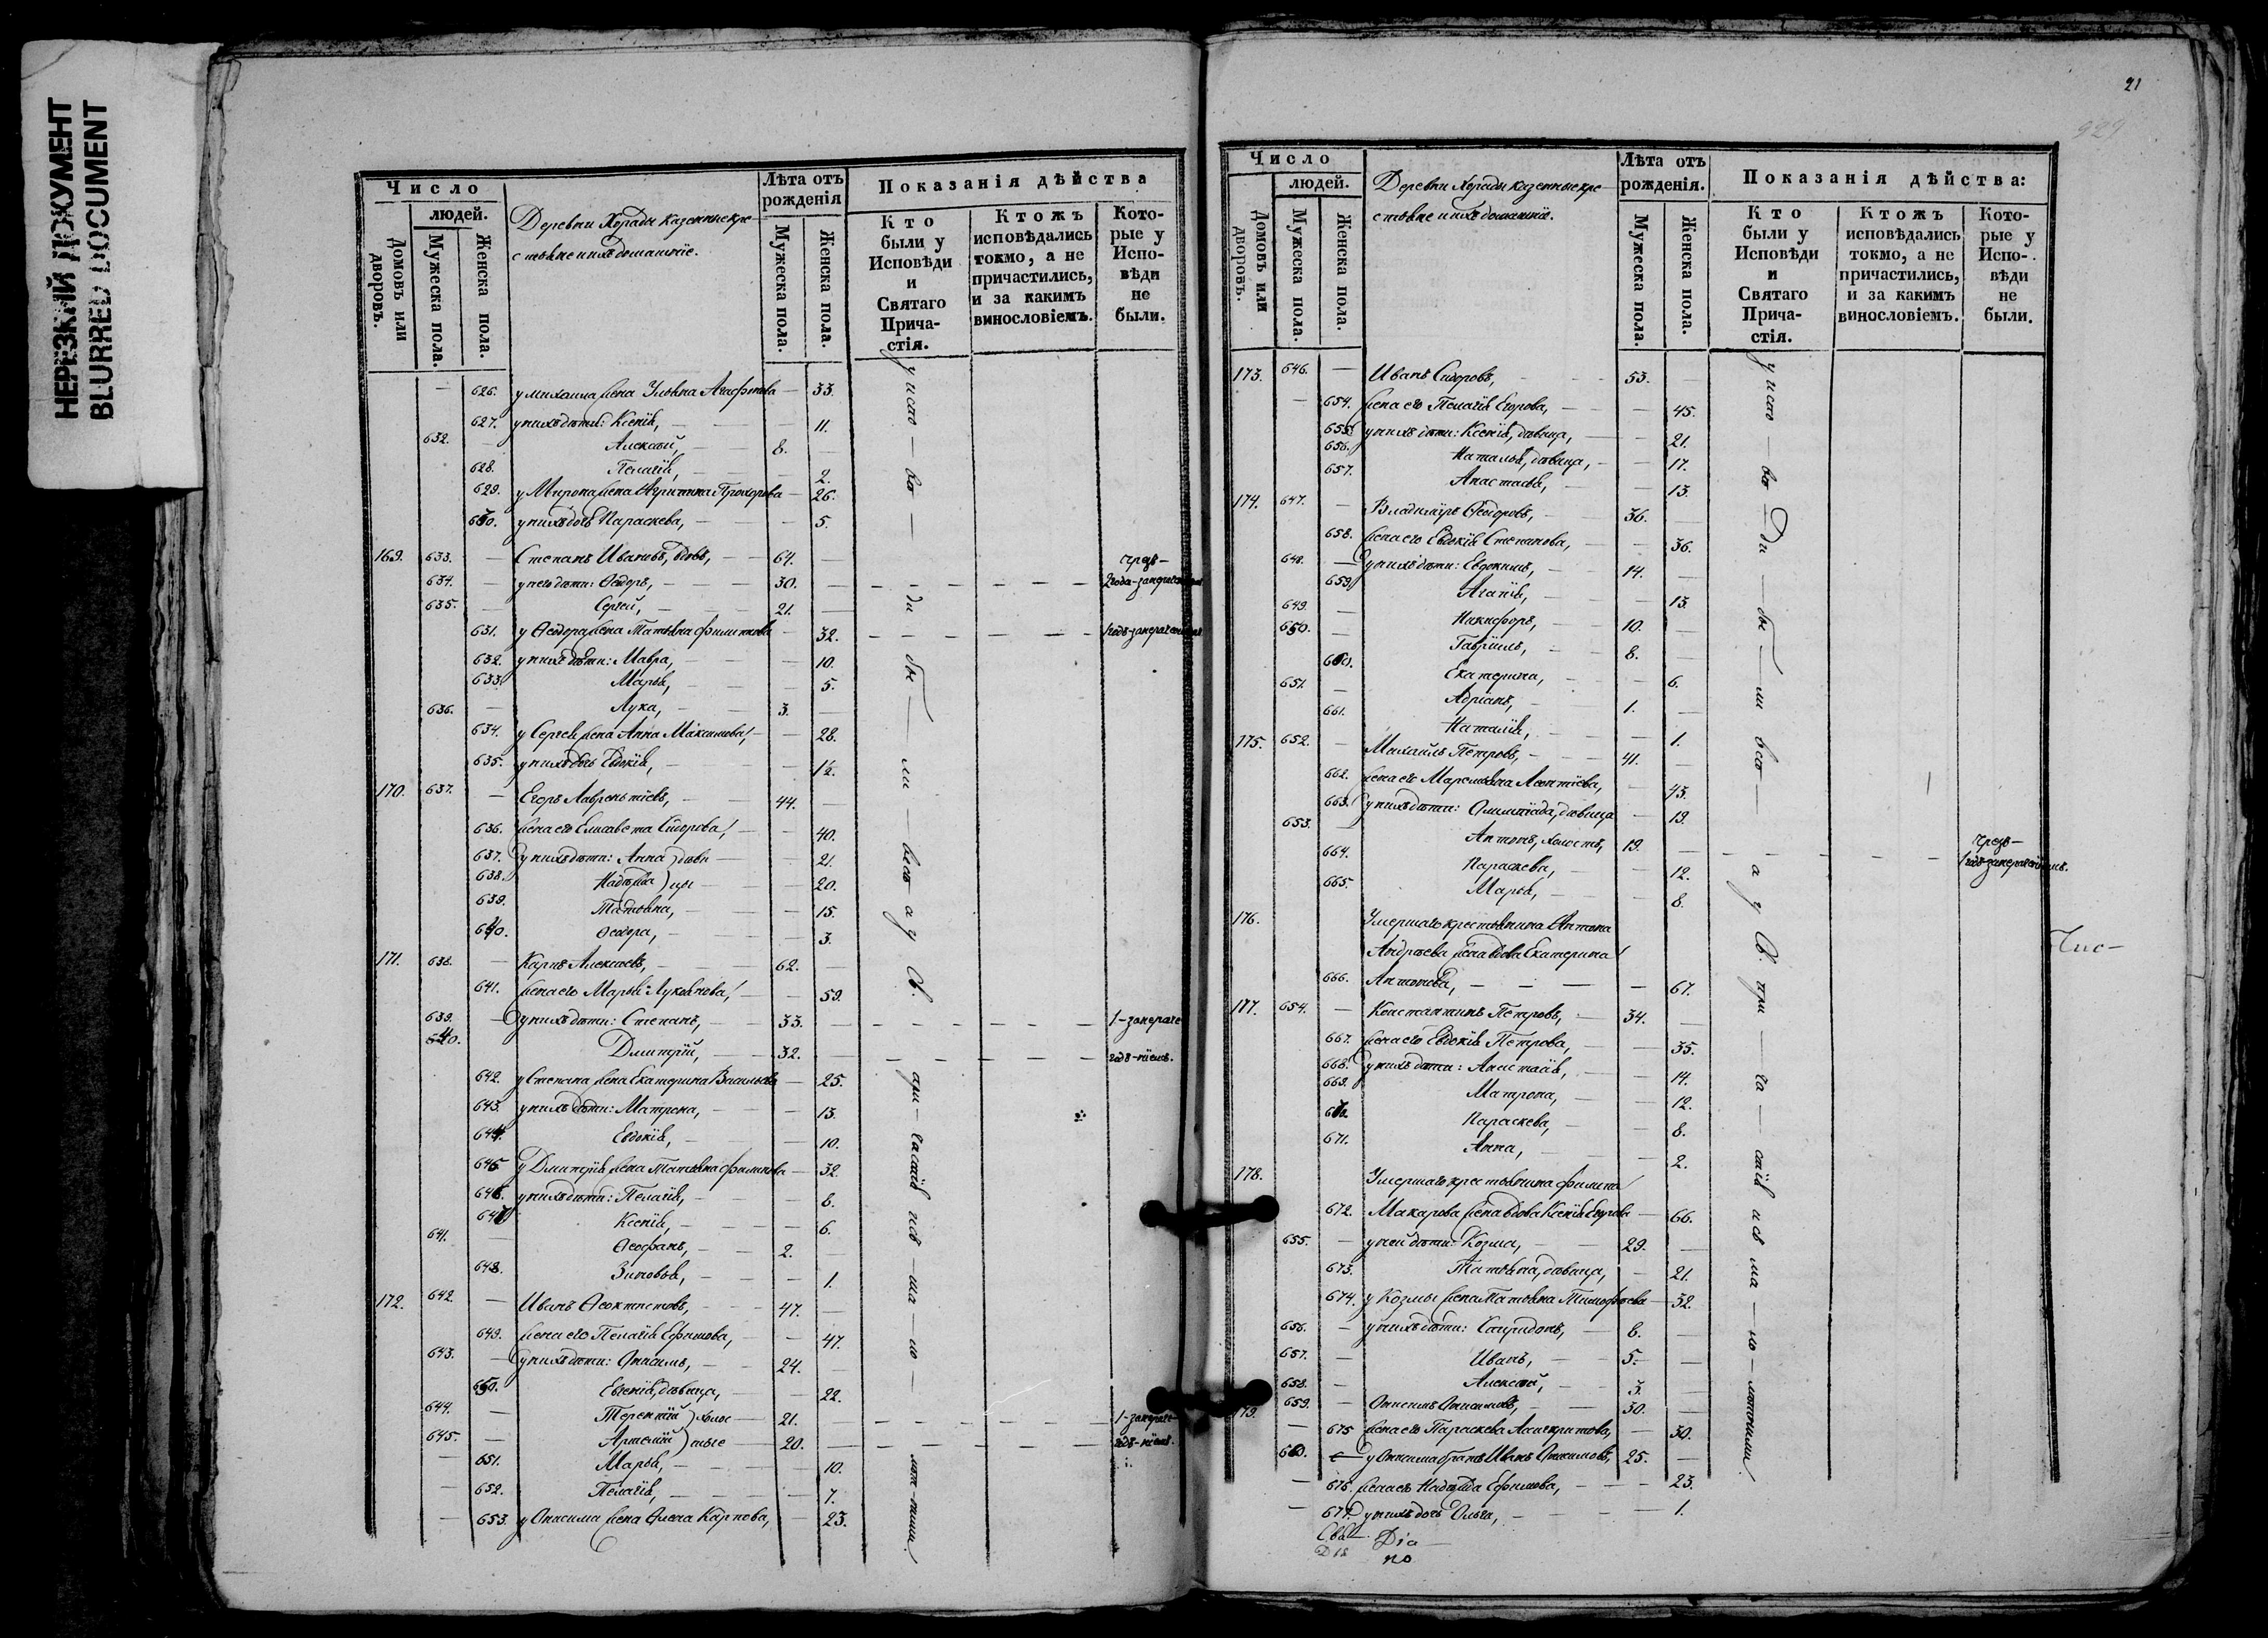 НЕРЕЗКИЙ ДОКУМЕНТ
BLURRED DOCUMENT
Число
людей.
Домовъ или дворовъ.
Мужеска пола.
Женска пола.
Деревни казенные кре-
стьяне и ихъ домашніе.
Лѣта отъ рожденія
Мужеска пола.
Женска пола.
Показанія дѣйства
Кто были у Исповѣди и Святаго Причастія.
Ктожъ исповѣдались токмо, а не причастились, и за какимъ винословіемъ.
Которые у Исповѣди не были.
— 626. у михаила жена Ульяна Агафонова — 33.
627. у нихъ дѣти: Ксенія, — 11.
632. — Алексѣй, — 8. —
628. Пелагія, — 2.
629. у Мирона жена Агрипина Прохорова — 26.
630. у нихъ дочь Параскева, — 5.
169. 633. — Степанъ Ивановъ, вдовъ, — 64. —
634. — у него дѣти: Ѳеодоръ, — 30. —
635. — Сергей, — 21. —
631. у Ѳеодора жена Татьяна Филипова — 32.
632. у нихъ дѣти: Мавра, — 10.
633. Марья, — 5.
636. — Лука, — 3. —
634. у Сергея жена Анна Максимова, — 28.
635. у нихъ дочь Евдокія, — 1½.
170. 637. — Егоръ Лаврентіевъ, — 44. —
636. жена его Елисавета Сидорова, — 40.
637. у нихъ дѣти: Анна ) дѣви — 21.
638. Надежда ) цы — 20.
639. Татьяна, — 15.
640. Ѳеодора, — 3.
171. 638. — Карпъ Алексѣевъ, — 62. —
641. жена его Марья Лукьянова, — 59.
639. — у нихъ дѣти: Степанъ, — 33. — 1-
640. Дмитрій, — 32. — годъ
642. у Степана жена Екатерина Васильева — 25.
643. у нихъ дѣти: Матрона, — 13.
644. Евдокія, — 10.
645. у Дмитрія жена Татьяна Филипова — 32
646. у нихъ дѣти: Пелагія, — 8.
647. Ксенія, — 6.
641. — Ѳеофанъ, — 2. —
648. Зиновья, — 1.
172. 642. — Иванъ Ѳеоктистовъ, — 47. —
649. жена его Пелагія Ефимова, — 47.
643. — у нихъ дѣти: Онисимъ, — 24. —
650. Евгенія, дѣвица, — 22.
644. — Терентій ) холос — 21. — 1-
645. — Артемій ) тые — 20. — годъ
— 651. Марья, — 10.
— 652. Пелагія, — 7.
— 653. у Онисима жена Олена Карпова, — 23.
21
929
Число
людей.
Домовъ или дворовъ.
Мужеска пола.
Женска пола.
Деревни казенные кре-
стьяне и ихъ домашніе.
Лѣта отъ рожденія.
Мужеска пола.
Женска пола.
Показанія дѣйства:
Кто были у Исповѣди и Святаго Причастія.
Ктожъ исповѣдались токмо, а не причастились, и за какимъ винословіемъ.
Которые у Исповѣди не были.
173. 646. — Иванъ Сидоровъ, — 53. —
— 654. жена его Пелагія Егорова, — 45.
655. у нихъ дѣти: Ксенія, дѣвица, — 21.
656. Наталья, дѣвица, — 17.
657. Анастасья, — 13.
174. 647. — Владиміръ Ѳеодоровъ, — 36. —
658. жена его Евдокія Степанова, — 36.
648. — у нихъ дѣти: Евдокимъ, — 14. —
659. Агапія, — 13.
649. — Никифоръ, — 10. —
650. — Гавріилъ, — 8. —
660. Екатерина, — 6.
651. — Адріанъ, — 1. —
661. Наталія, — 1.
175. 652. — Михаилъ Петровъ, — 41. —
662. жена его Маремьяна Леонтіева, — 43.
663. у нихъ дѣти: Олимпіада, дѣвица — 19.
653. — Антонъ, холостъ, 19. — чрезъ 1 годъ
664. Параскева, — 12.
665. Марья, — 8.
176. Умершаго крестьянина Антона
Андреева жена вдова Екатерина
666. Антонова, — 67.
177. 654. — Константинъ Петровъ, — 34. —
667. жена его Евдокія Петрова, — 35.
668. у нихъ дѣти: Анастасія, — 14.
669. Матрона, — 12.
670. Параскева, — 8.
671. Анна, — 2.
178. Умершаго крестьянина Филипа
672. Макарова жена вдова Ксенія Егорова — 66.
655. — у ней дѣти: Козма, — 29. —
673. Татьяна, дѣвица, — 21.
674. у Козмы жена Татьяна Тимофеева — 32.
656. — у нихъ дѣти: Спиридонъ, — 8. —
657. — Иванъ, — 5. —
658. — Алексѣй, — 3. —
179. 659. — Онисимъ Онисимовъ, — 30. —
— 675 жена его Параскева — 30.
660. — у Онисима братъ Иванъ Онисимовъ, 25. —
— 676. жена его Надежда Ефимова, — 23.
— 677. у нихъ дочь Ольга, — 1.
Діа
но